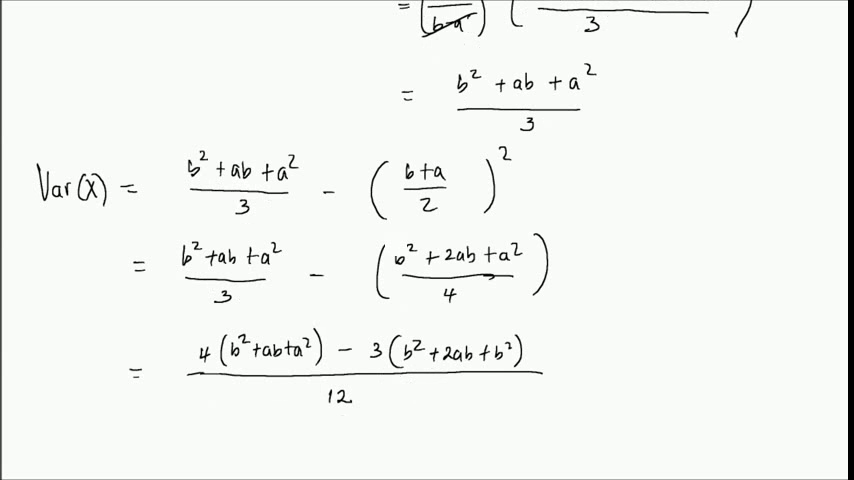 = (/(b-a)) (/3)
= (b² + ab + a²)/3
Var(X) = (b² + ab + a²)/3 - ((b+a)/2)²
= (b² + ab + a²)/3 - ((b² + 2ab + a²)/4)
= (4(b² + ab + a²) - 3(b² + 2ab + b²))/12